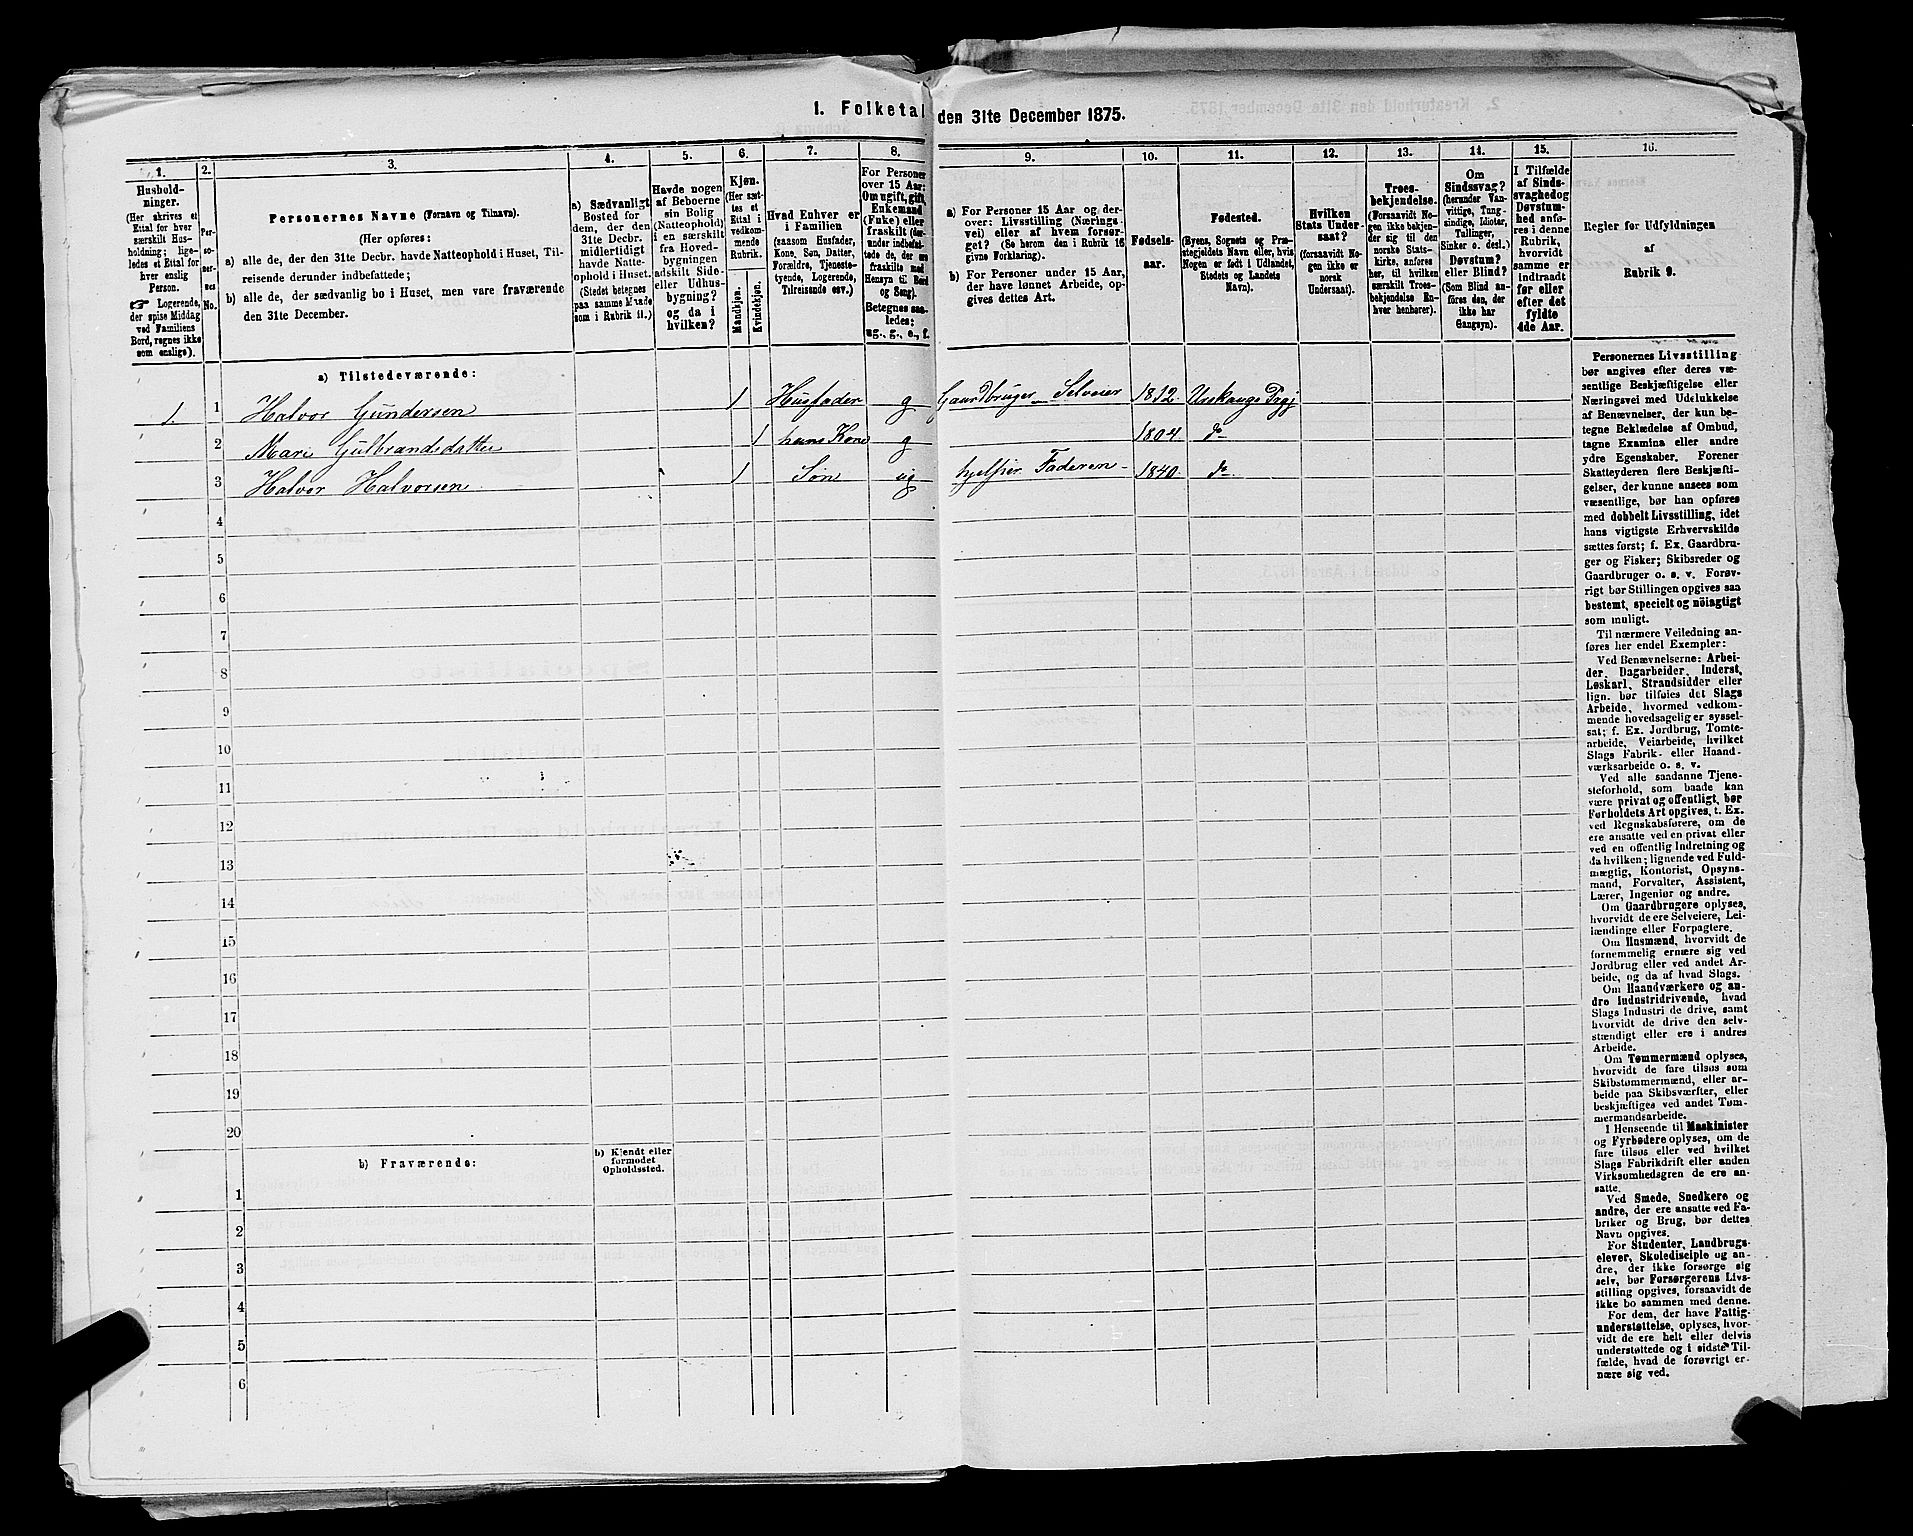 1. Folketal den 31te December 1875.
1.
2.
3.
4.
5.
6.
7.
8.
9.
10.
11.
12.
13.
14.
15.
16.
Hushold-
ninger.
(Her skrives et
Ettal for hver
særskilt Hus-
holdning; lige-
ledes et Ettal for
hver enslig
Person.
☞ Logerende,
der spise Middag
ved Familiens
Bord, regnes ikke
som enslige).
Per-
so-
ner-
nes
No.
Personernes Navne (Fornavn og Tilnavn).
(Her opføres:
a) alle de, der den 31te Decbr. havde Natteophold i Huset, Til-
reisende derunder indbefattede;
b) alle de, der sædvanlig bo i Huset, men vare fraværende
den 31te December.
a) Sædvanligt
Bosted for
dem, der den
31te Decbr.
midlertidigt
havde Natte-
ophold i Huset.
(Stedet betegnes
paa samme Maade
som i Rubrik 11.)
Havde nogen
af Beboerne
sin Bolig
(Natteophold)
i en særskilt
fra Hoved-
bygningen
adskilt Side-
eller Udhus-
bygning?
og da i
hvilken?
Kjøn.
(Her sæt-
tes et
Ettal i
vedkom-
mende
Rubrik.
Mandkjøn.
Kvindekjøn.
Hvad Enhver er
i Familien
(saasom Husfader,
Kone, Søn, Datter,
Forældre, Tjeneste-
tyende, Logerende,
Tilreisende osv.)
For Personer
over 15 Aar:
Om ugift, gift,
Enkemand
(Enke) eller
fraskilt (der-
under indbefat-
tede de, der ere
fraskilte med
Hensyn til Bord
og Seng).
Betegnes saa-
ledes:
ug., g., e., f.
a) For Personer 15 Aar og der-
over: Livsstilling (Nærings-
vei) eller af hvem forsør-
get? (Se herom den i Rubrik 16
givne Forklaring).
b) For Personer under 15 Aar,
der have lønnet Arbeide, op-
gives dettes Art.
Fødsels-
aar.
Fødested.
(Byens, Sognets og Præ-
stegjeldets Navn eller, hvis
Nogen er født i Udlandet,
Stedets og Landets
Navn).
Hvilken
Stats Under-
saat?
(forsaavidt No-
gen ikke er
norsk
Undersaat).
Troes-
bekjendelse.
(Forsaavidt No-
gen ikke bekjen-
der sig til den
norske Stats-
kirke, anføres
her, til hvilken
særskilt Troes-
bekjendelse En-
hver henhører).
Om
Sindssvag?
(herunder Van-
vittige, Tung-
sindige, Idioter,
Tullinger,
Sinker o. desl.)
Døvstum?
eller Blind?
(Som Blind an-
føres den, der
ikke har
Gangsyn).
I Tilfælde
af Sinds-
svaghed og
Døvstum-
hed anfø-
res i denne
Rubrik,
hvorvidt
samme er
indtraadt
før eller
efter det
fyldte
4de Aar.
Regler for Udfyldningen
af
Rubrik 9.
a) Tilstedeværende:
1. 1 Halvor Gundersen 1 Husfader g Gaardbruger Selveier 1812.
2 Mari Gulbrandsdatter 1 hans Kone g 1804 do
3 Halvor Halvorsen 1 Søn ug hjelper Faderen 1840 do
4
5
6
7
8
9
10
11
12
13
14
15
16
17
18
19
20
b) Fraværende:
b) Kjendt eller
formodet
Opholdssted.
1
2
3
4
5
6
Personernes Livsstilling
bør angives efter deres væ-
sentlige Beskjæftigelse eller
Næringsvei med Udelukkelse
af Benævnelser, der kun be-
tegne Beklædelse af Ombud,
tagne Examina eller andre
ydre Egenskaber. Forener
Skatteyderen flere Beskjæfti-
gelser, der kunne ansees som
væsentlige, bør han opføres
med dobbelt Livsstilling, idet
hans vigtigste Erhvervskilde
sættes først; f. Ex. Gaardbru-
ger og Fisker; Skibsreder og
Gaardbruger o. s. v. Forøv-
rigt bør Stillingen opgives saa
bestemt, specielt og nöiagtigt
som muligt.
Til nærmere Veiledning an-
føres her endel Exempler:
Ved Benævnelserne: Arbei-
der, Dagarbeider, Inderst,
Løskarl, Strandsidder eller
lign. bør tilføies det Slags
Arbeide, hvormed vedkom-
mende hovedsagelig er syssel-
sat; f. Ex. Jordbrug, Tomte-
arbeide, Veiarbeide, hvilket
Slags Fabrik- eller Haand-
værksarbeide o. s. v.
Ved alle saadanne Tjene-
steforhold, som baade kan
være privat og offentligt, bør
Forholdets Art opgives, t. Ex.
ved Regnskabsførere, om de
ere ansatte ved en privat eller
ved en offentlig Indretning og
da hvilken; lignende ved Fuld-
mægtig, Kontorist, Opsyns-
mand, Forvalter, Assistent,
Lærer, Ingeniør og andre.
Om Gaardbrugere oplyses,
hvorvidt de ere Selveiere, Lei-
lændinge eller Forpagtere.
Om Husmænd, hvorvidt de
fornemmelig ernære sig ved
Jordbrug eller ved andet Ar-
beide, og da af hvad Slags.
Om Haandværkere og an-
dre Industridrivende, hvad
Slags Industri de drive, samt
hvorvidt de drive den selv-
stændigt eller ere i andres
Arbeide.
Om Tømmermænd oplyses,
hvorvidt de fare tilsøs som
Skibstømmermænd, eller ar-
beide paa Skibsværfter, eller
beskjæftiges ved andet Tøm-
mermandsarbeide.
I Henseende til Maskinister
og Fyrbødere oplyses, om de
fare tilsøs eller ved hvilket
Slags Fabrikdrift eller anden
Virksomhedsgren de ere an-
satte.
Ved Smede, Snedkere og
andre, der ere ansatte ved Fa-
briker og Brug, bør dettes
Navn opgives.
For Studenter, Landbrugs-
elever, Skoledisciple og an-
dre, der ikke forsørge sig
selv, bør Forsørgerens Livs-
stilling opgives, forsaavidt de
ikke bo sammen med denne.
For dem, der have Fattig-
understøttelse, oplyses, hvor-
vidt de ere helt eller delvis
understøttede og i sidste Til-
fælde, hvad de forøvrigt er-
nære sig ved.